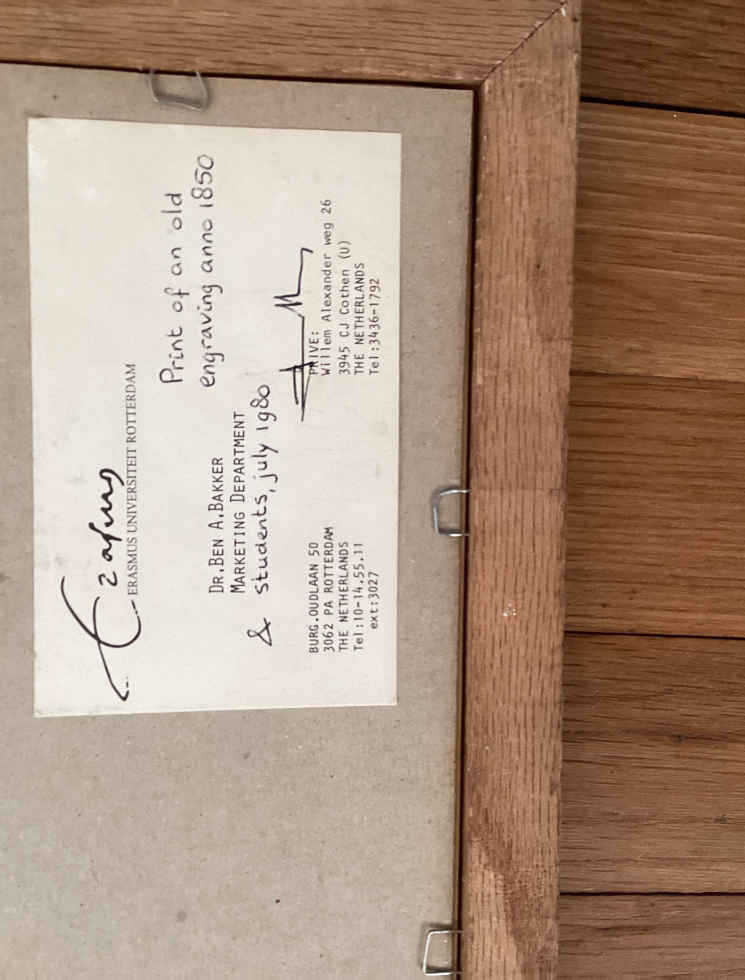 Erasmus
ERASMUS UNIVERSITEIT ROTTERDAM
Print of an old
engraving anno 1850
DR.BEN A.BAKKER
MARKETING DEPARTMENT
& students, july 1980
BURG.OUDLAAN 50
3062 PA ROTTERDAM
THE NETHERLANDS
Tel:10-14.55.11
ext:3027
PRIVE:
Willem Alexander weg 26
3945 CJ Cothen (U)
THE NETHERLANDS
Tel:3436-1792